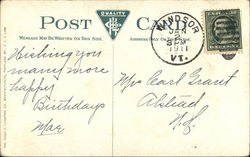 POST CARD
QUALITY
MESSAGE MAY BE WRITTEN ON THIS SIDE.
WINDSOR
JAN
1911
VT.
Wishing you
many more
happy
Birthdays
Mae
Mrs Carl Grant
Alstead
N.H.